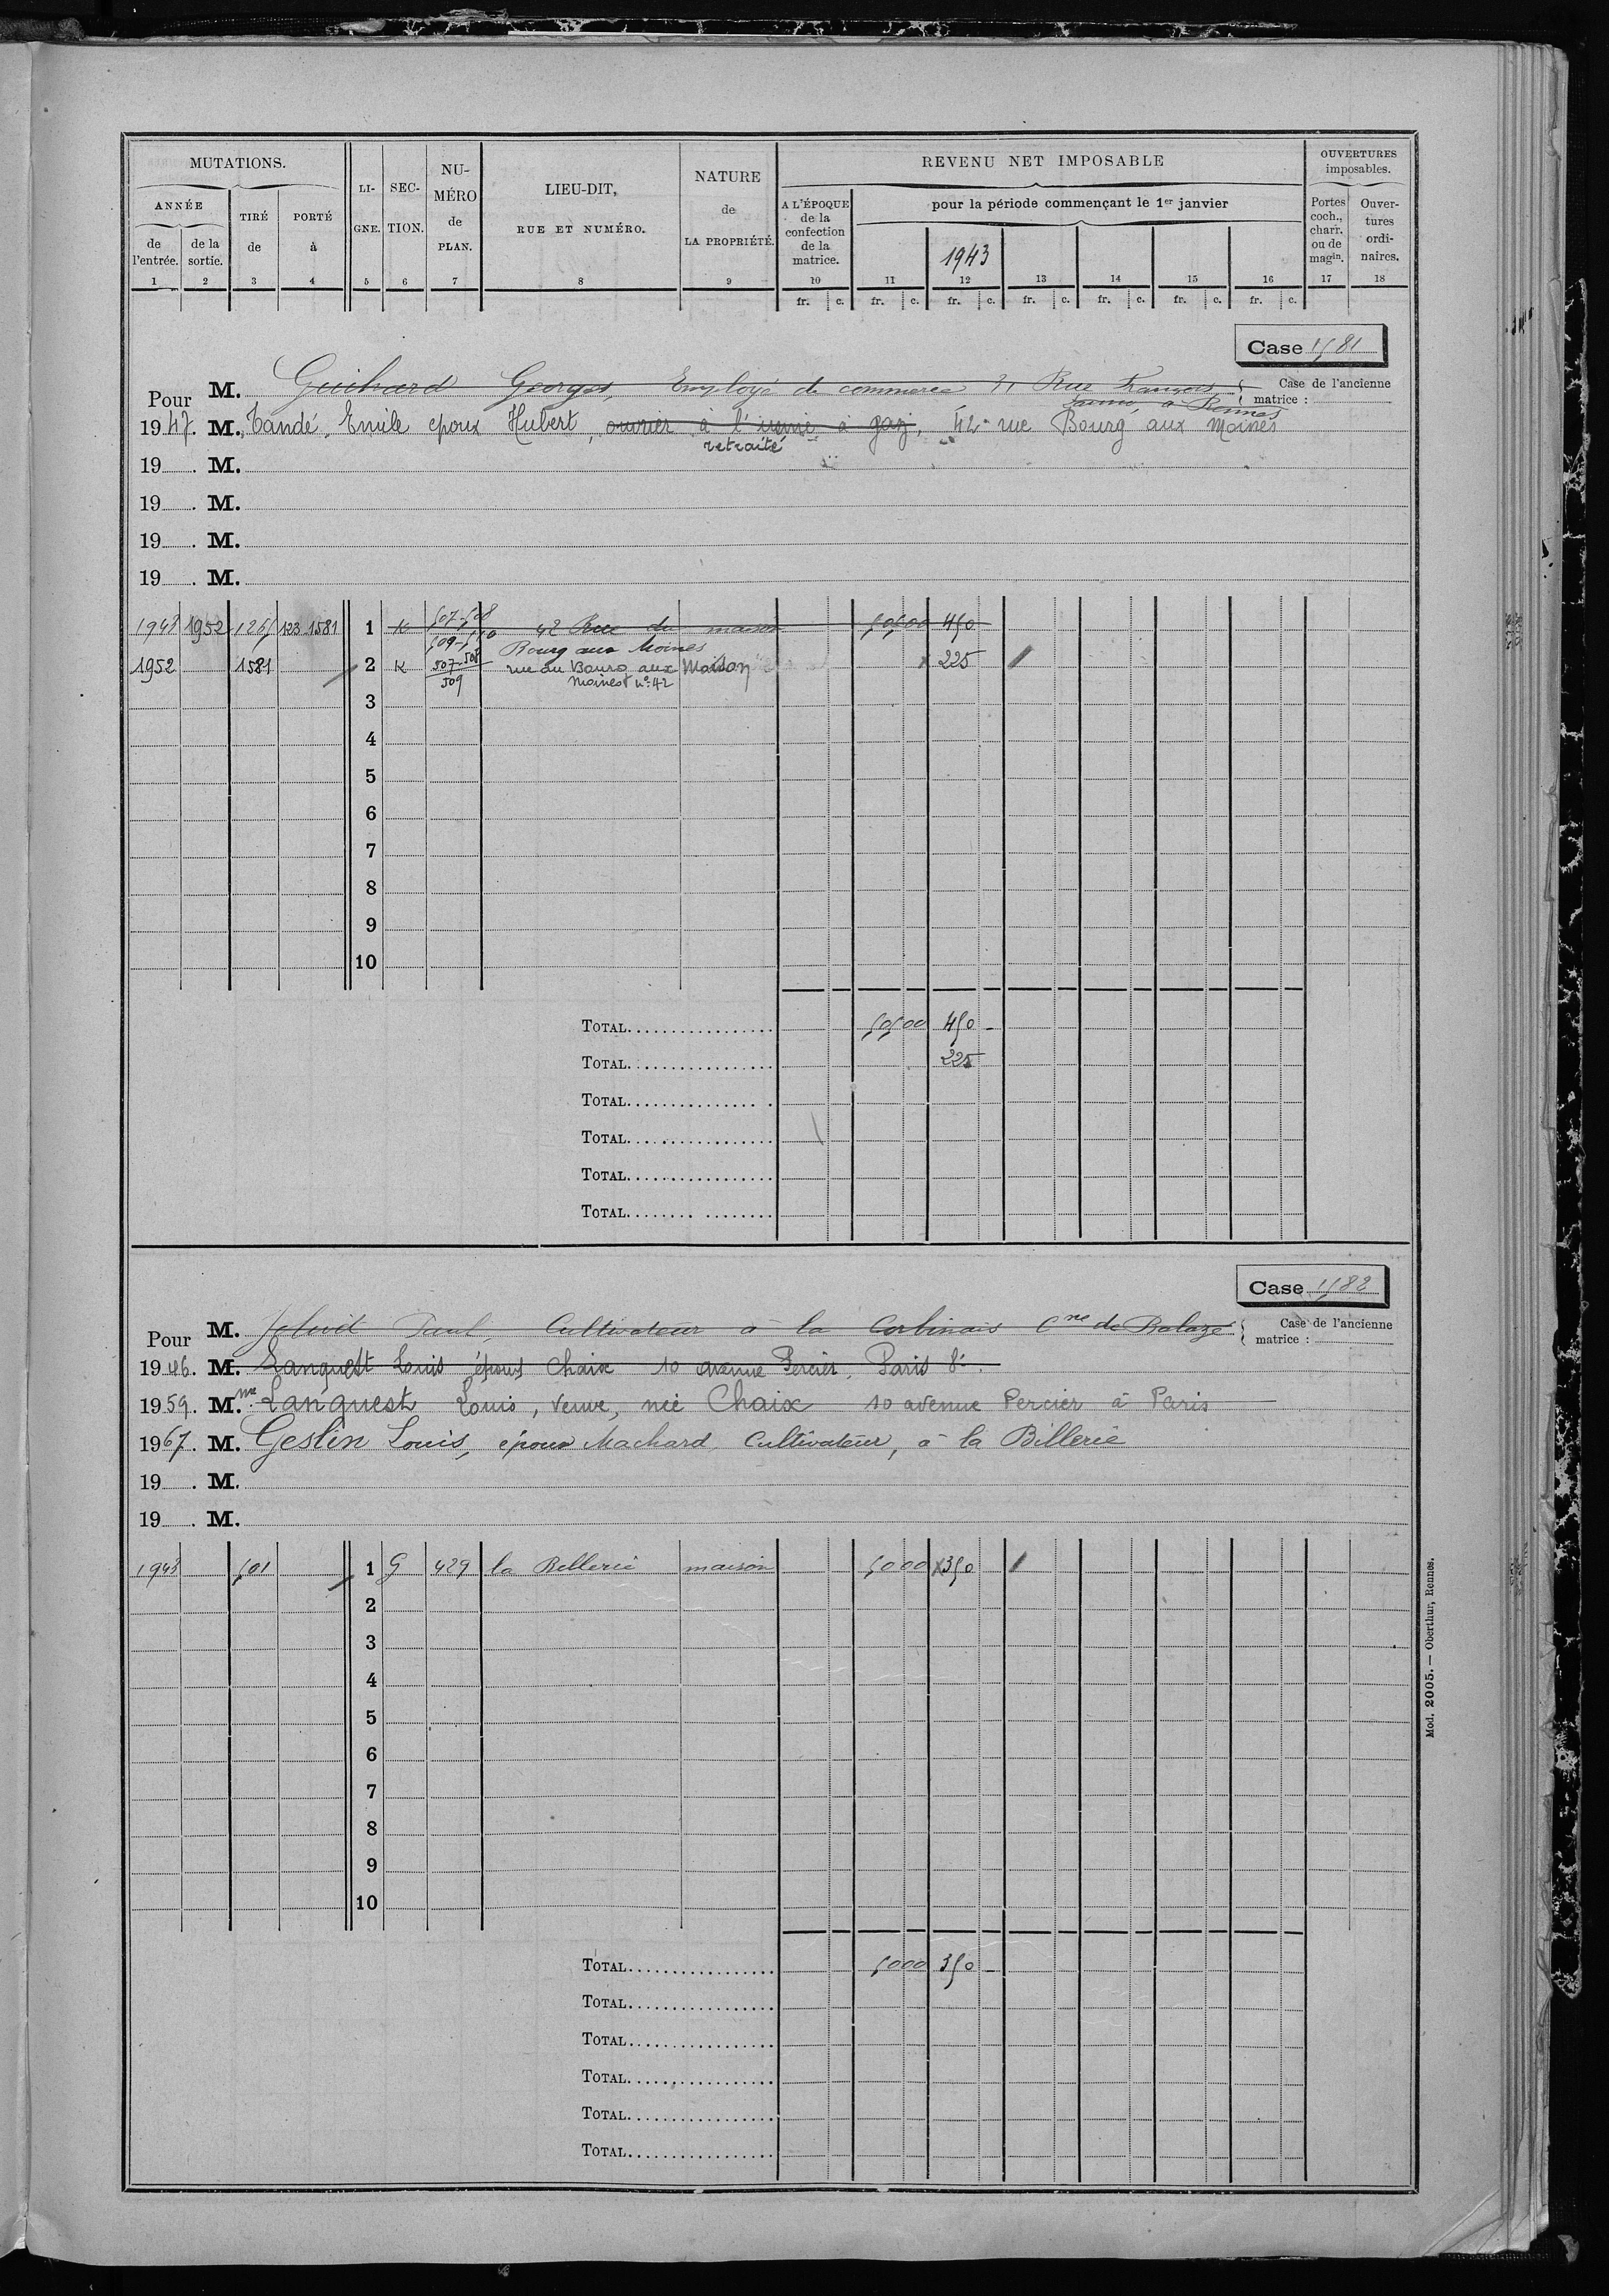 MUTATIONS.
ANNÉE
de l'entrée.
de la sortie.
TIRÉ de
PORTÉ à
LI-GNE.
SEC-TION.
NU-MÉRO de PLAN.
LIEU-DIT,
RUE ET NUMÉRO.
NATURE de LA PROPRIÉTÉ.
REVENU NET IMPOSABLE
A L'ÉPOQUE de la confection de la matrice.
pour la période commençant le 1er janvier
1943
OUVERTURES imposables.
Portes coch., charr. ou de magin.
Ouver-tures ordi-naires.
1 2 3 4 5 6 7 8 9 10 11 12 13 14 15 16 17 18
fr. c. fr. c. fr. c. fr. c. fr. c. fr. c. fr. c.
Case 1581
Pour M. Guihard Georges, Employé de commerce 31 Rue François
à Rennes
Case de l'ancienne matrice :
1947. M. Tandé, Emile epoux Hubert, ouvrier à l'usine à gaz, 42 rue Bourg aux Moines
retraité
19 . M.
19 . M.
19 . M.
19 . M.
1943 1952 1265 123 1581 1 K 507-508 509-510 42 Rue du Bourg aux Moines maison 50500 450
1952 1581 2 K 507-508 509 rue du Bourg aux Moines nº 42 Maison 225
3
4
5
6
7
8
9
10
TOTAL 50500 450
TOTAL 225
TOTAL
TOTAL
TOTAL
TOTAL
Case 1582
Pour M. Paul, Cultivateur à la Corbinais Cne de Balazé
Case de l'ancienne matrice :
1946. M. Lanquest Louis époux Chaix 10 avenue Percier, Paris 8e
1959. Mme Lanquest Louis, veuve, née Chaix 10 avenue Percier à Paris
1967. M. Geslin Louis, époux Machard Cultivateur, à la Billerie
19 . M.
19 . M.
1943 501 1 G 429 la Bellerie maison 5000 x350
2
3
4
5
6
7
8
9
10
TOTAL 5000 350
TOTAL
TOTAL
TOTAL
TOTAL
TOTAL
Mod. 2005. — Oberthur, Rennes.